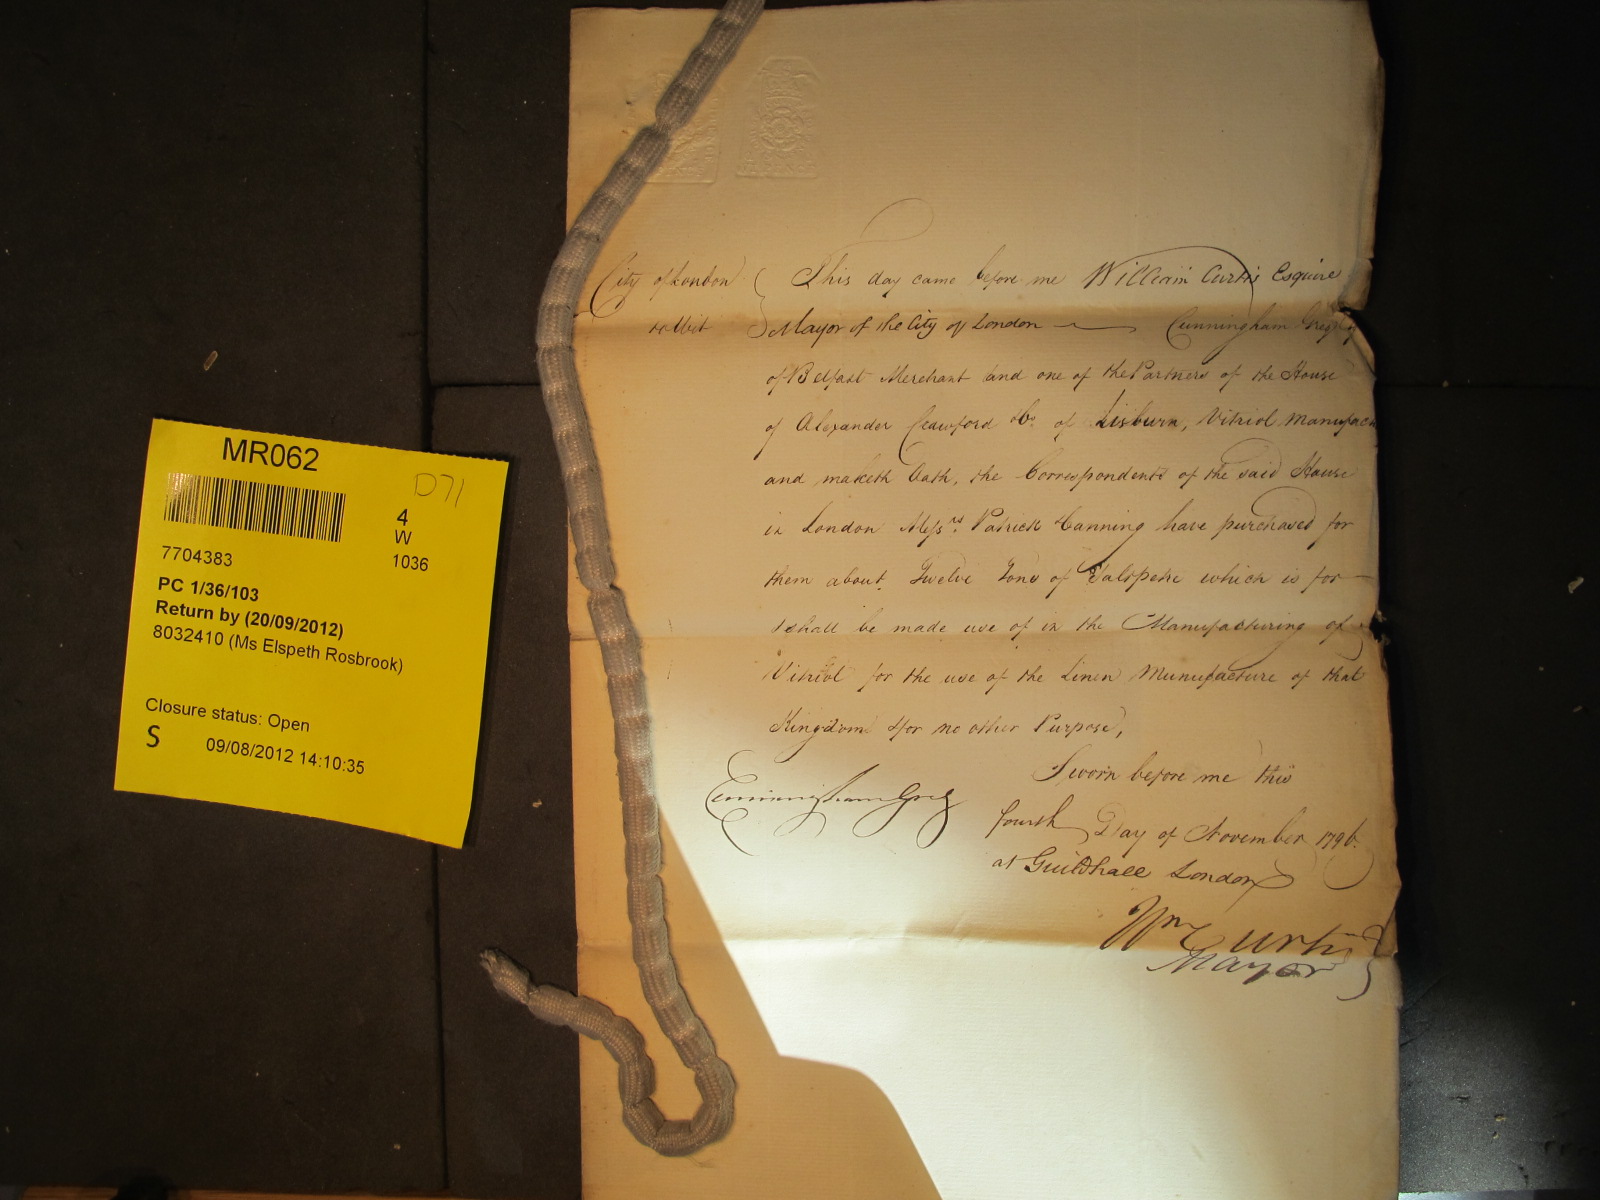 MR062
D71
4
W
1036
7704383
PC 1/36/103
Return by (20/09/2012)
8032410 (Ms Elspeth Rosbrook)
Closure status: Open
S 09/08/2012 14:10:35
City of London This day came before me William Curtis Esquire
to Wit Mayor of the City of London Cunningham Greg
of Belfast Merchant and one of the Partners of the House
of Alexander Crawford & Co. of Lisburn, Vitriol Manufac
and maketh Oath, the Correspondents of the said House
in London Messrs. Patrick Canning have purchased for
them about Twelve Tons of Saltpetre which is for
& shall be made use of in the Manufacturing of
Vitriol for the use of the Linen Manufacture of that
Kingdom & for no other Purpose,
Sworn before me this
Cunningham Greg
fourth Day of November 1796.
at Guildhall London
Wm Curtis
Mayor